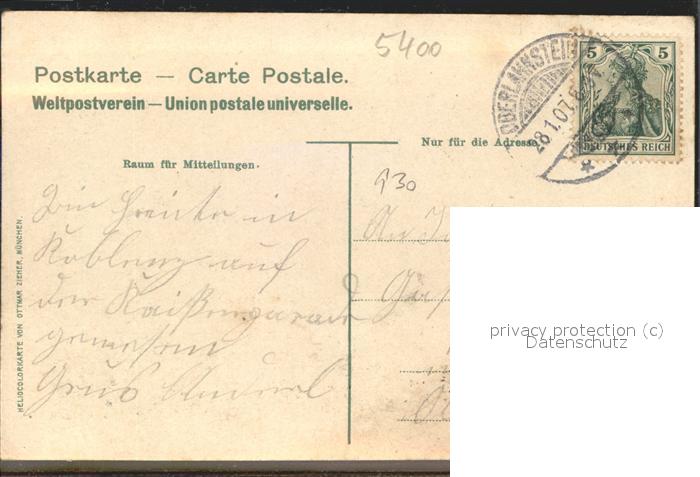 5400
Postkarte — Carte Postale.
Weltpostverein — Union postale universelle.
OBERLAHNSTEIN
28.1.07
5 5
DEUTSCHES REICH
Nur für die Adresse
Raum für Mitteilungen.
930
Bin heute in
Koblenz auf
der Kaißerparade
gewesen
Gruß
An
HELIOCOLORKARTE VON OTTMAR ZIEHER, MÜNCHEN.
privacy protection (c)
Datenschutz